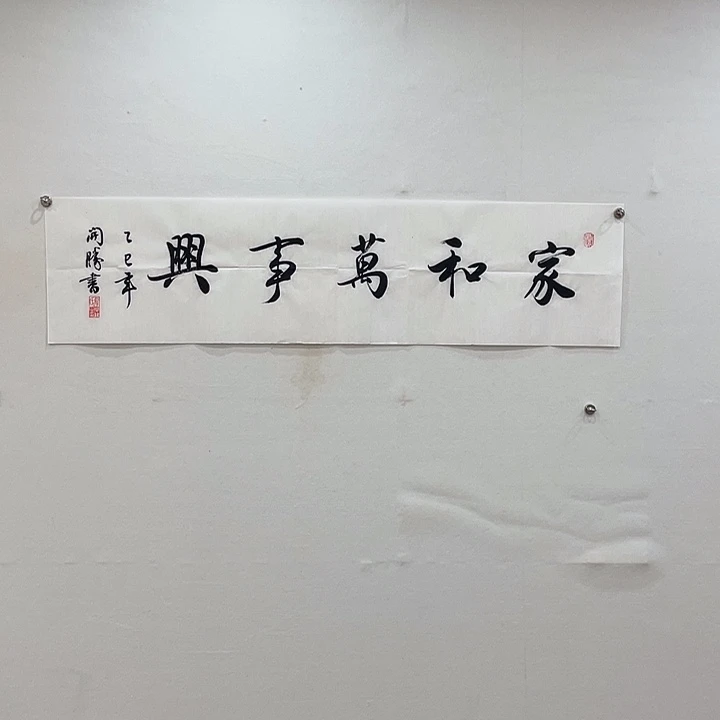 家和萬事興
乙巳年
開勝書